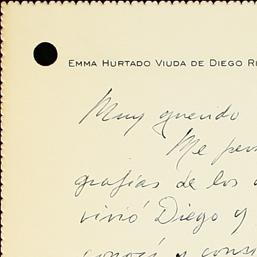 EMMA HURTADO VIUDA DE DIEGO R
Muy querido
Me
grafías de los
vivió Diego y
conocí y